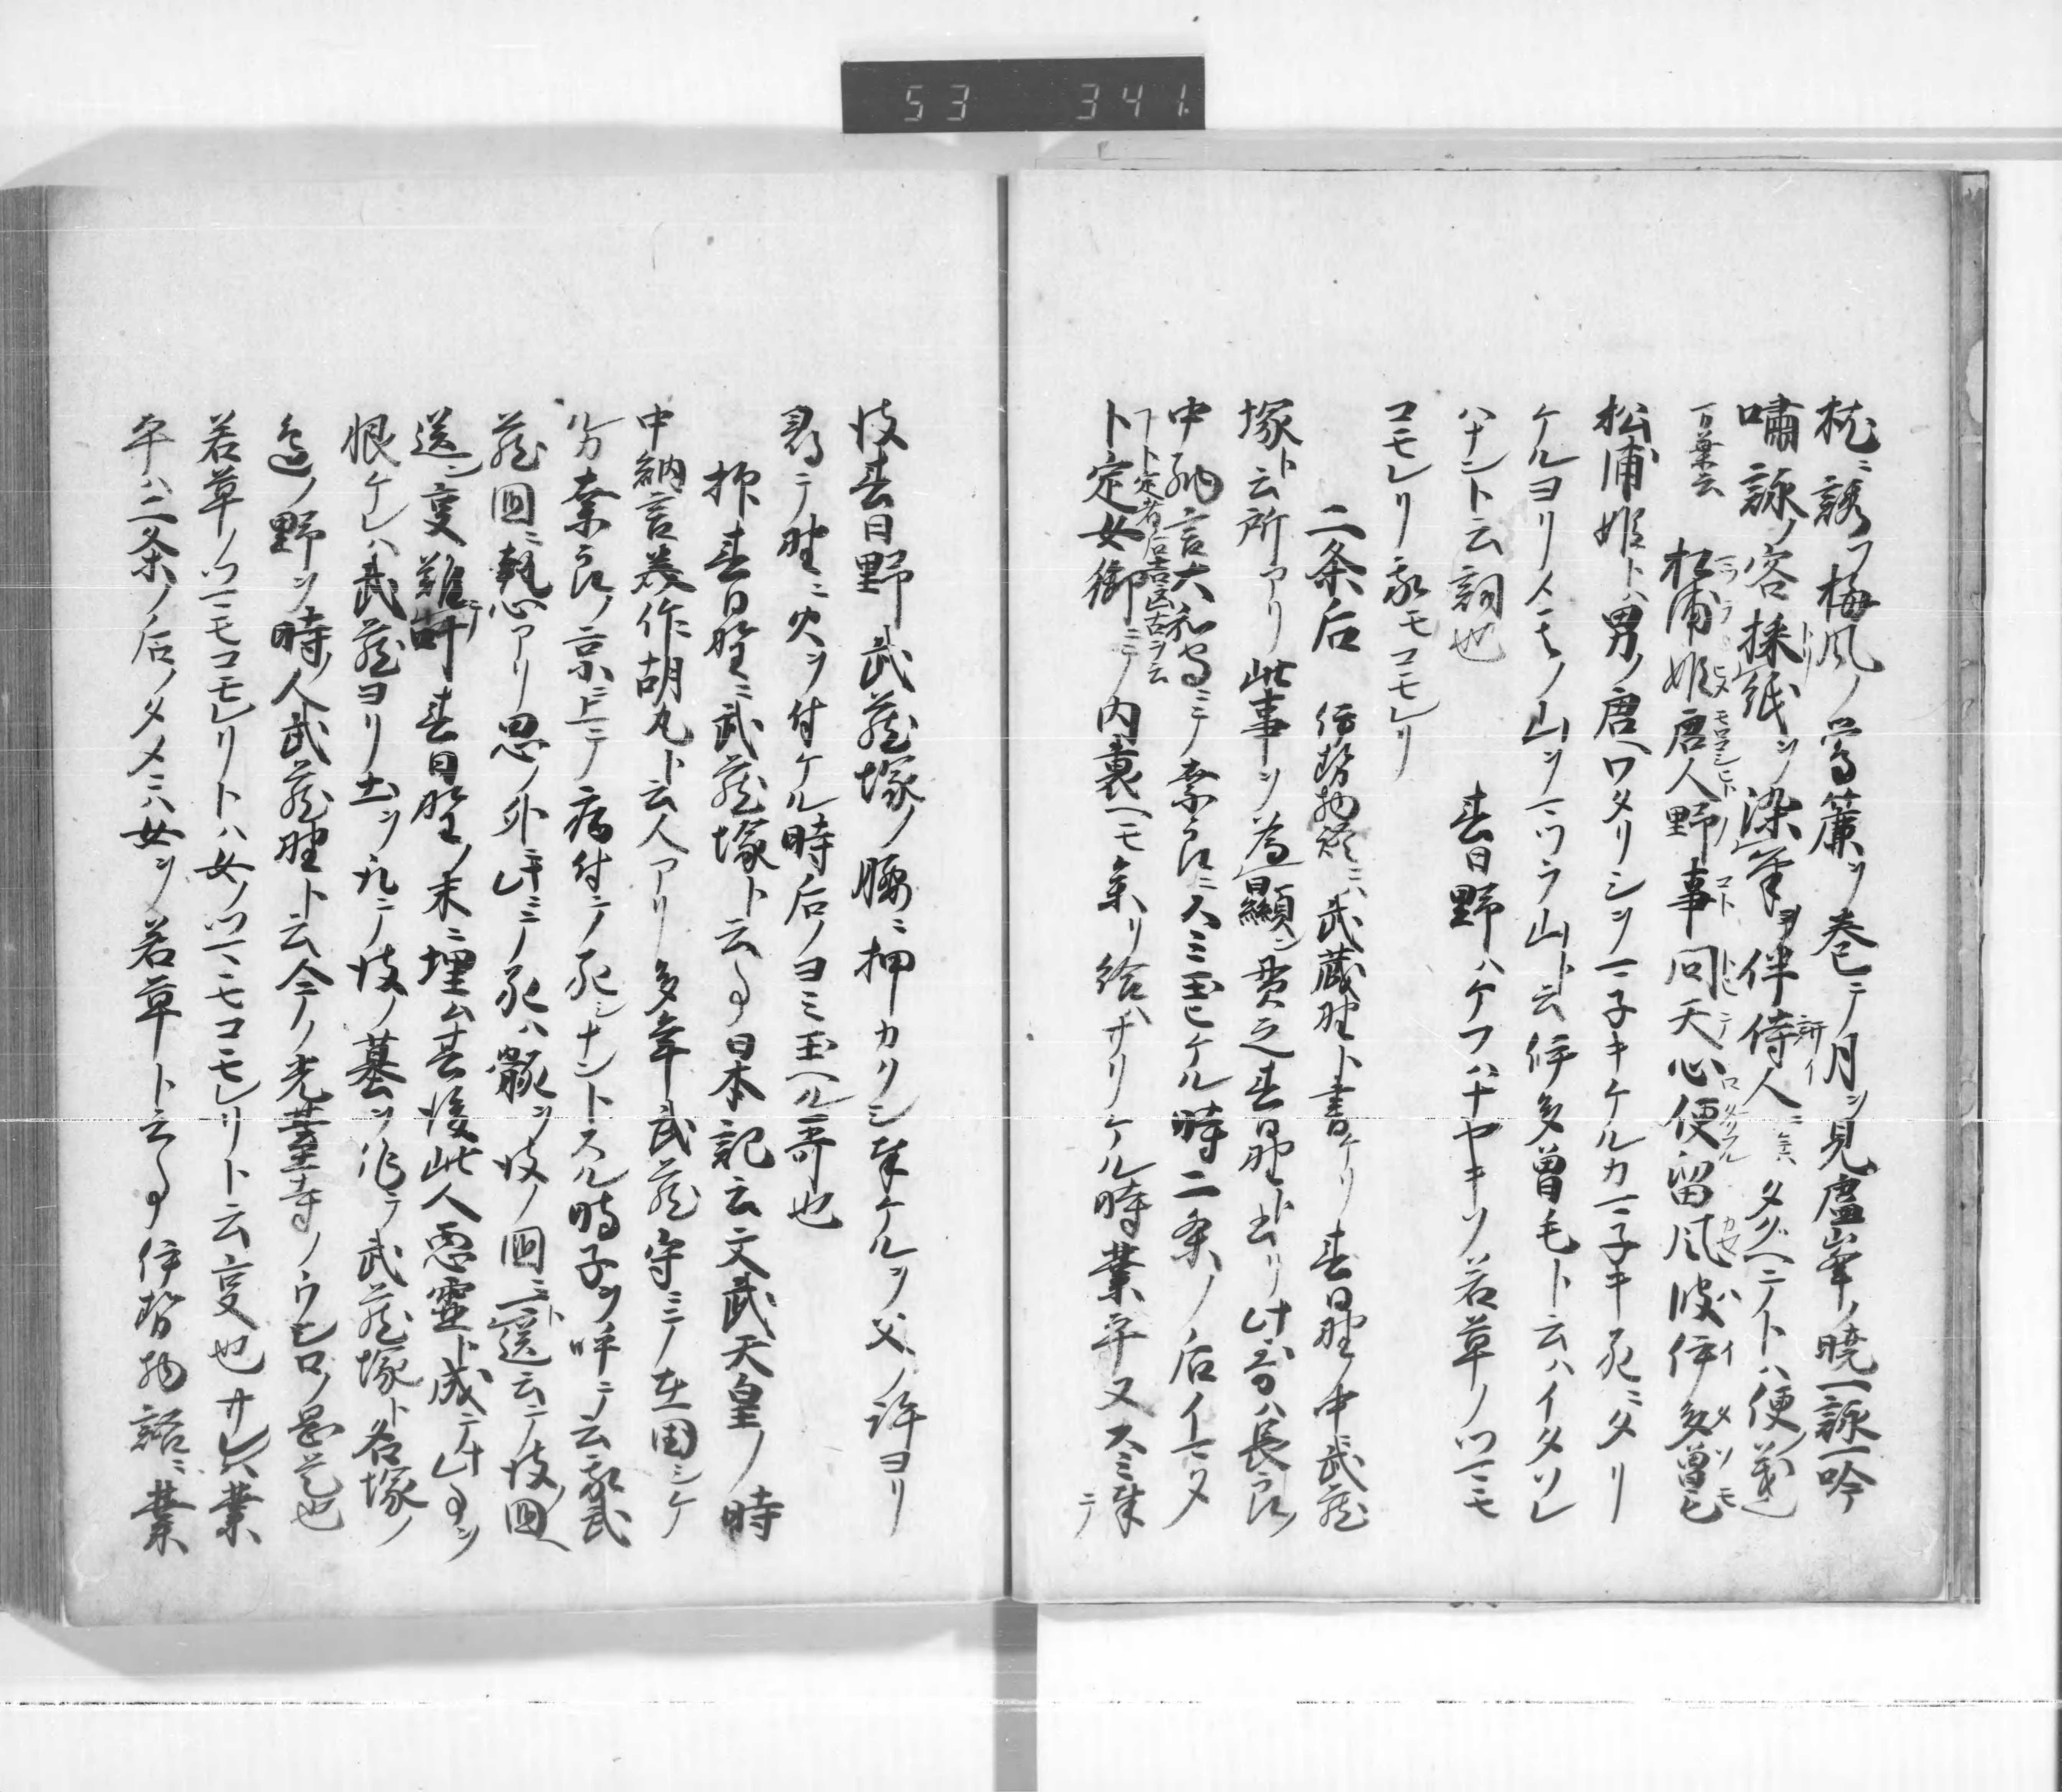 53 341
枕ニ誘フ梅風ノ簾ヲ巻テ月ヲ見廬峯ノ暁一詠一吟
嘯詠ノ客採紙ヲ染筆ヲ伴侍人タグヘテトハ便
万葉云 松浦姫唐人野事同天心便留風波伊多曽毛
マツラヒメモロコシヒトノコトトヒテ カセハイタソモ
松浦姫トハ男ノ唐ヘワタリシヲマ子キケルカマ子キ死ニタリ
ケルヨリ人其ノ山ヲマツラ山ト云伊多曽毛ト云ハイタソレ
ハナント云詞也 春日野ハケフハナヤキソ若草ノツマモ
コモレリ我モコモレリ
二条后 伊勢物語ニハ武蔵野ト書ケリ春日野ノ中武蔵
塚ト云所アリ此事ヲ為顕ン貫之春日野ト云リ此哥ハ長良ノ
中納言大和守ニテ奈良ニスミ玉ヒケル時二条ノ后イマタ
フト定者后
ト定女御ニテ内裏ヘモ参リ給ハサリケル時業平又スミ来テ
彼春日野武蔵塚ノ腰ニ押カクシ奉ケルヲ父ノ許ヨリ
尋テ野ニ火ヲ付ケル時后ノヨミ玉ヘル哥也
抑春日野ニ武蔵塚ト云事日本記云文武天皇ノ時
中納言美作胡丸ト云人アリ多年武蔵守ニテ在国シケ
ルカ奈良ノ京ニ上テ病付テ死ナントスル時子ヲ呼テ云我武
蔵国ニ執心アリ思ノ外此ニテ死ハ骸ヲ彼ノ国ニ送ト云テ彼国ヘ
送ン事難叶テ春日野ノ末ニ埋ム其後此人悪霊ト成テ此事ヲ
恨ケレハ武蔵ヨリ土ヲ取テ彼ノ墓ヲ作テ武蔵塚ト名塚ノ
邊ノ野ヲ時ノ人武蔵野ト云今ノ光臺寺ノウシロノ岡是也
若草ノツマモコモレリトハ女ノツマモコモレリト云事也サレハ業
平ハ二条ノ后ノタメニハ女ヲ若草ト云事伊勢物語ニ業